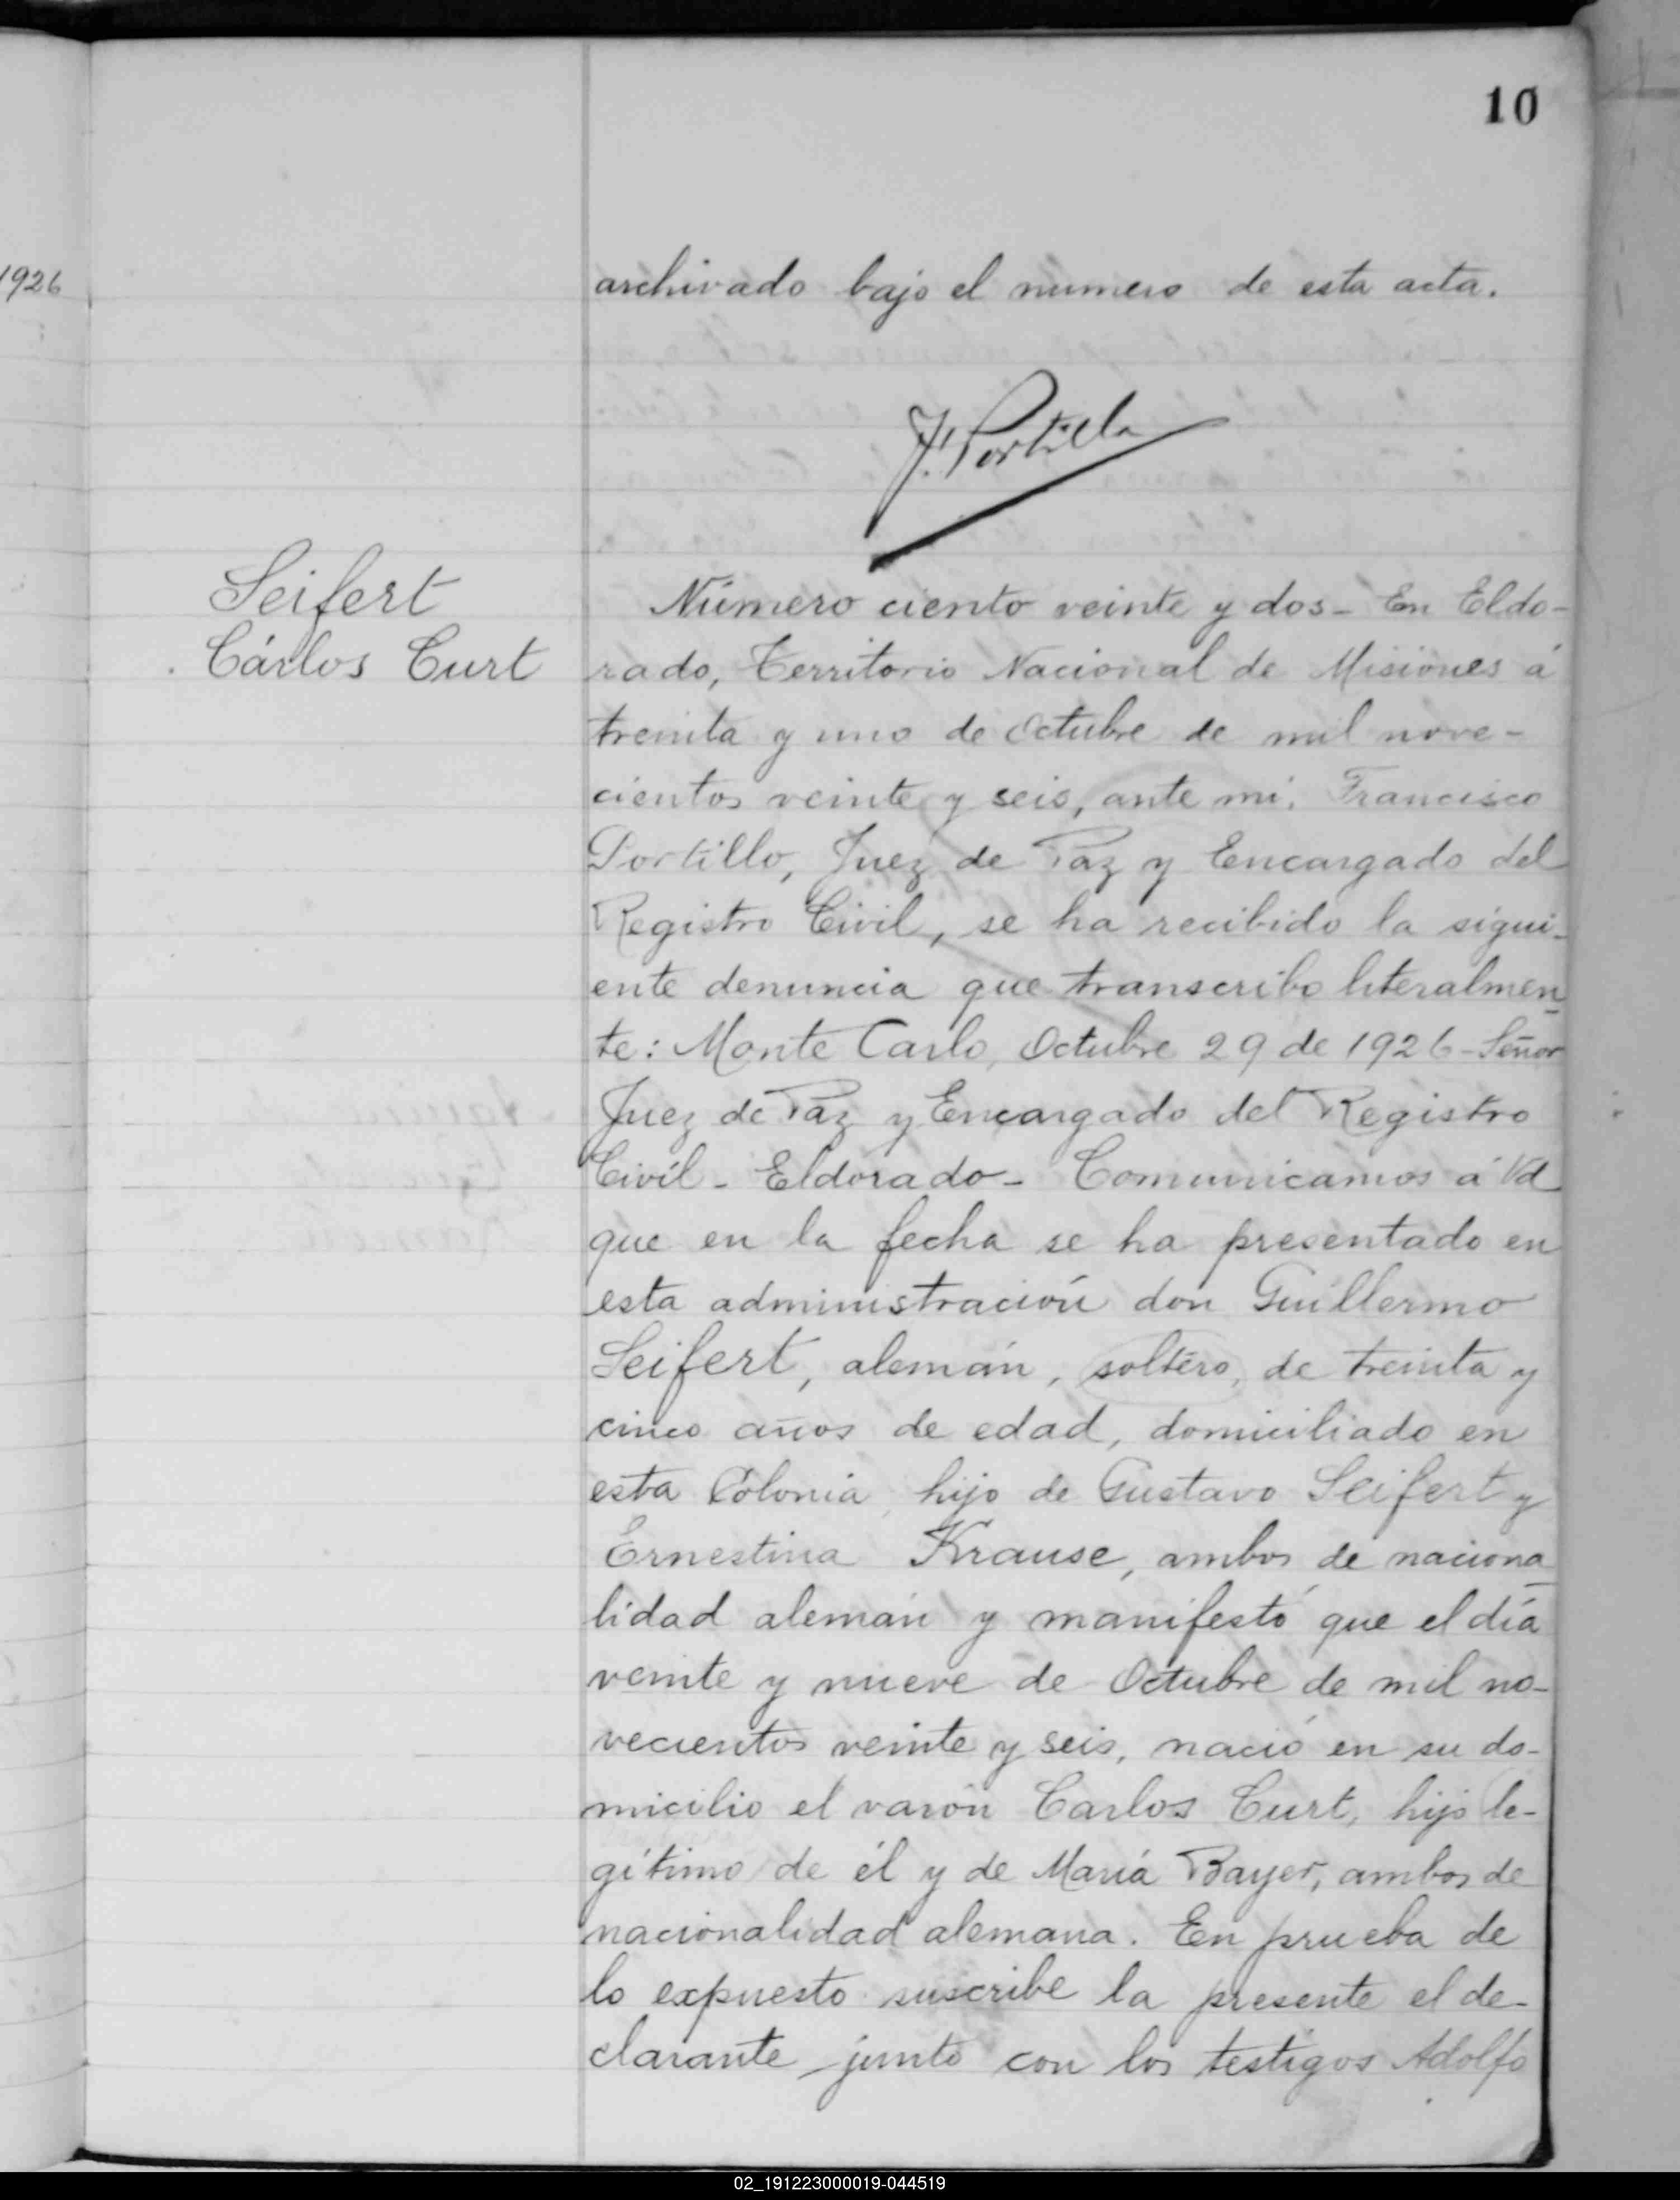 10
1926
archivado bajo el numero de esta acta.
F. Portillo
Seifert
Cárlos Curt
Número ciento veinte y dos - En Eldo-
rado, Territorio Nacional de Misiones á
treinta y uno de Octubre de mil nove-
cientos veinte y seis, ante mi, Francisco
Portillo, Juez de Paz y Encargado del
Registro Civil, se ha recibido la sigui-
ente denuncia que transcribo literalmen-
te: Monte Carlo, Octubre 29 de 1926 - Señor
Juez de Paz y Encargado del Registro
Civíl - Eldorado - Comunicamos á Vd
que en la fecha se ha presentado en
esta administración don Guillermo
Seifert, alemán, soltero, de treinta y
cinco años de edad, domiciliado en
esta Colonia, hijo de Gustavo Seifert y
Ernestina Krause, ambos de naciona-
lidad alemán y manifestó que el día
veinte y nueve de Octubre de mil no-
vecientos veinte y seis, nació en su do-
micilio el varón Carlos Curt, hijo le-
gítimo de él y de María Bayer, ambos de
nacionalidad alemana. En prueba de
lo expuesto suscribe la presente el de-
clarante junto con los testigos Adolfo
02_191223000019-044519